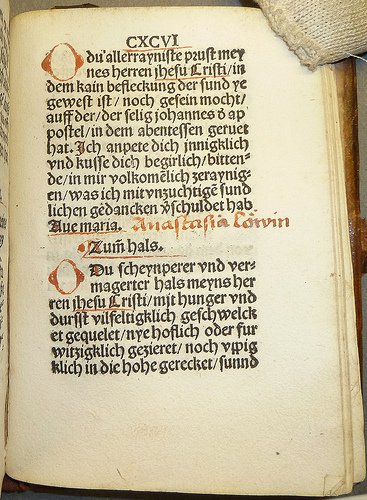 CXCVI
O du allerrayniste prust mey
nes herren jhesu Cristi/in
dem kain befleckung der sund ye
gewest ist/ noch gesein mocht/
auff der/ der selig johannes d ap
postel/ in dem abentessen geruet
hat. Jch anpete dich jnnigklich
vnd kusse dich begirlich/ bitten-
de/ in mir volkomēlich zeraynig-
en/ was ich mit vnzuchtige sund
lichen gedancken v̄schuldet hab
Aue maria. Anastasia Corvin
Zum̄ hals.
O Du scheynperer vnd ver-
magerter hals meyns her
ren jhesu Cristi/ mit hunger vnd
durst vilfeltigklich geschwelck
et gequelet/ nye hoflich oder fur
witzigklich gezieret/ noch vppig
klich in die hohe gerecket/ sunnd